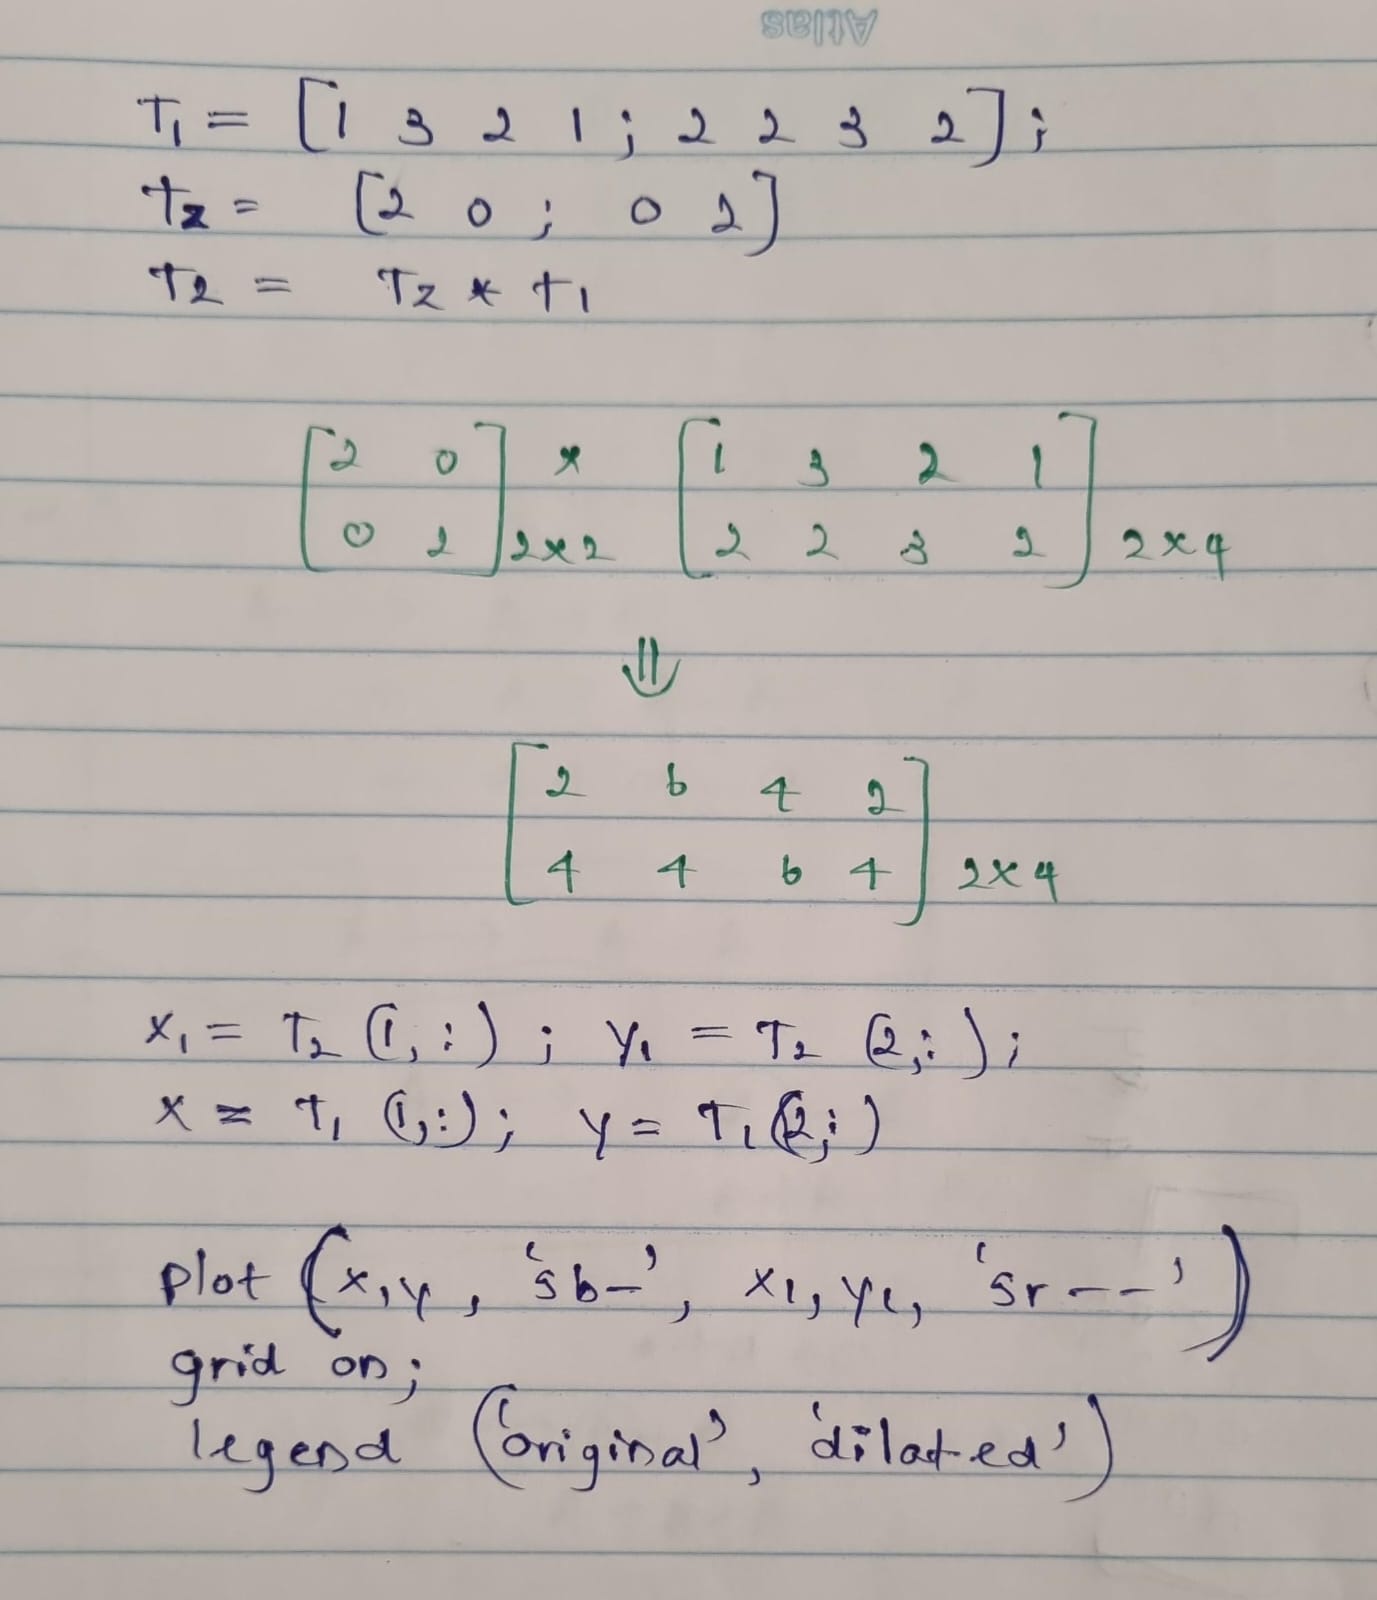 Atlas
T1 = [1 3 2 1 ; 2 2 3 2];
Tz = [2 0 ; 0 2]
T2 = Tz * T1
[2 0
0 2] 2x2 * [1 3 2 1
2 2 3 2] 2x4
⇓
[2 6 4 2
4 4 6 4] 2x4
x1 = T2 (1,:) ; y1 = T2 (2,:);
x = T1 (1,:); y = T1(2,:)
plot (x,y, 'sb-', x1, y1, 'sr--')
grid on;
legend ('original', 'dilated')